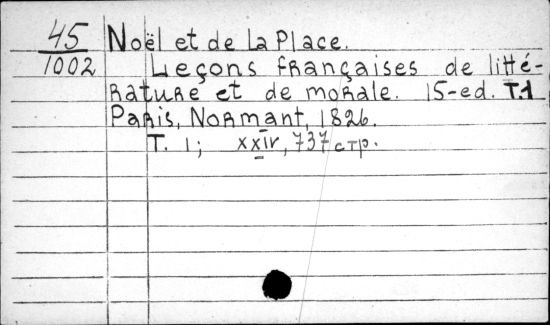 45
1002
Noël et de La Place.
Leçons françaises de litté-
rature et de morale. 15-ed. T.1
Paris, Normant, 1826.
T. 1; XXIV, 737 стр.